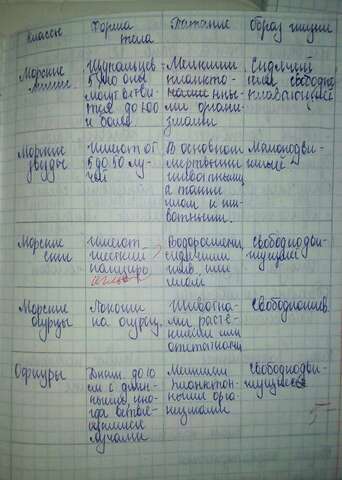 Классы
Форма
тела
Питание
Образ жизни
Морские
лилии.
Щупальцев
5, но они
могут ветви-
ться до 100
и более
Мелкими
планкто-
нными
ми органи-
змами
Сидячий
или свободно
плавающие
Морские
звёзды
Имеют от
5 до 50 лу-
чей
В основном
мертвыми
животными
а также
илом и жи-
вотными.
Малоподви-
жные
Морские
ежи
Имеют
панцирь
Водорослями,
сидячими
жив. или
илом
свободнодви-
жущиеся
Морские
огурцы
Похожи
на огурец.
Животны-
ми расте-
ниями или
Офиуры
до 10
см с длин-
ными, ино-
гда ветвя-
щимися
лучами
Мелкими
планктон-
ными орга-
низмами
свободнодви-
жущиеся
5-